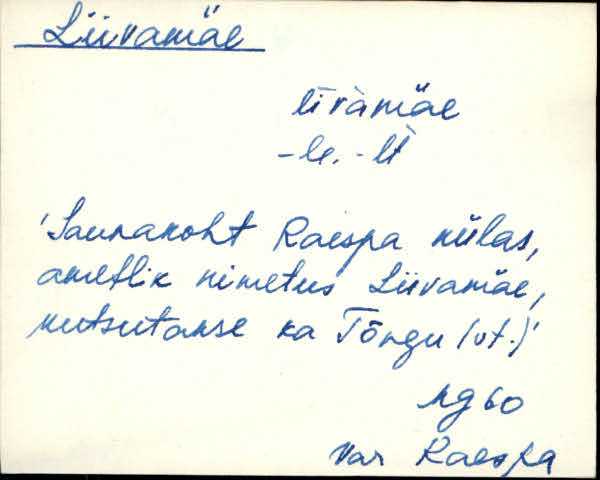 Liivamäe
līvàmäe
-le, -lt
'Saunakoht Raespa külas,
ametlik nimetus Liivamäe,
kutsutakse ka Tõngu (vt.)'
Mg 60
Var Raespa